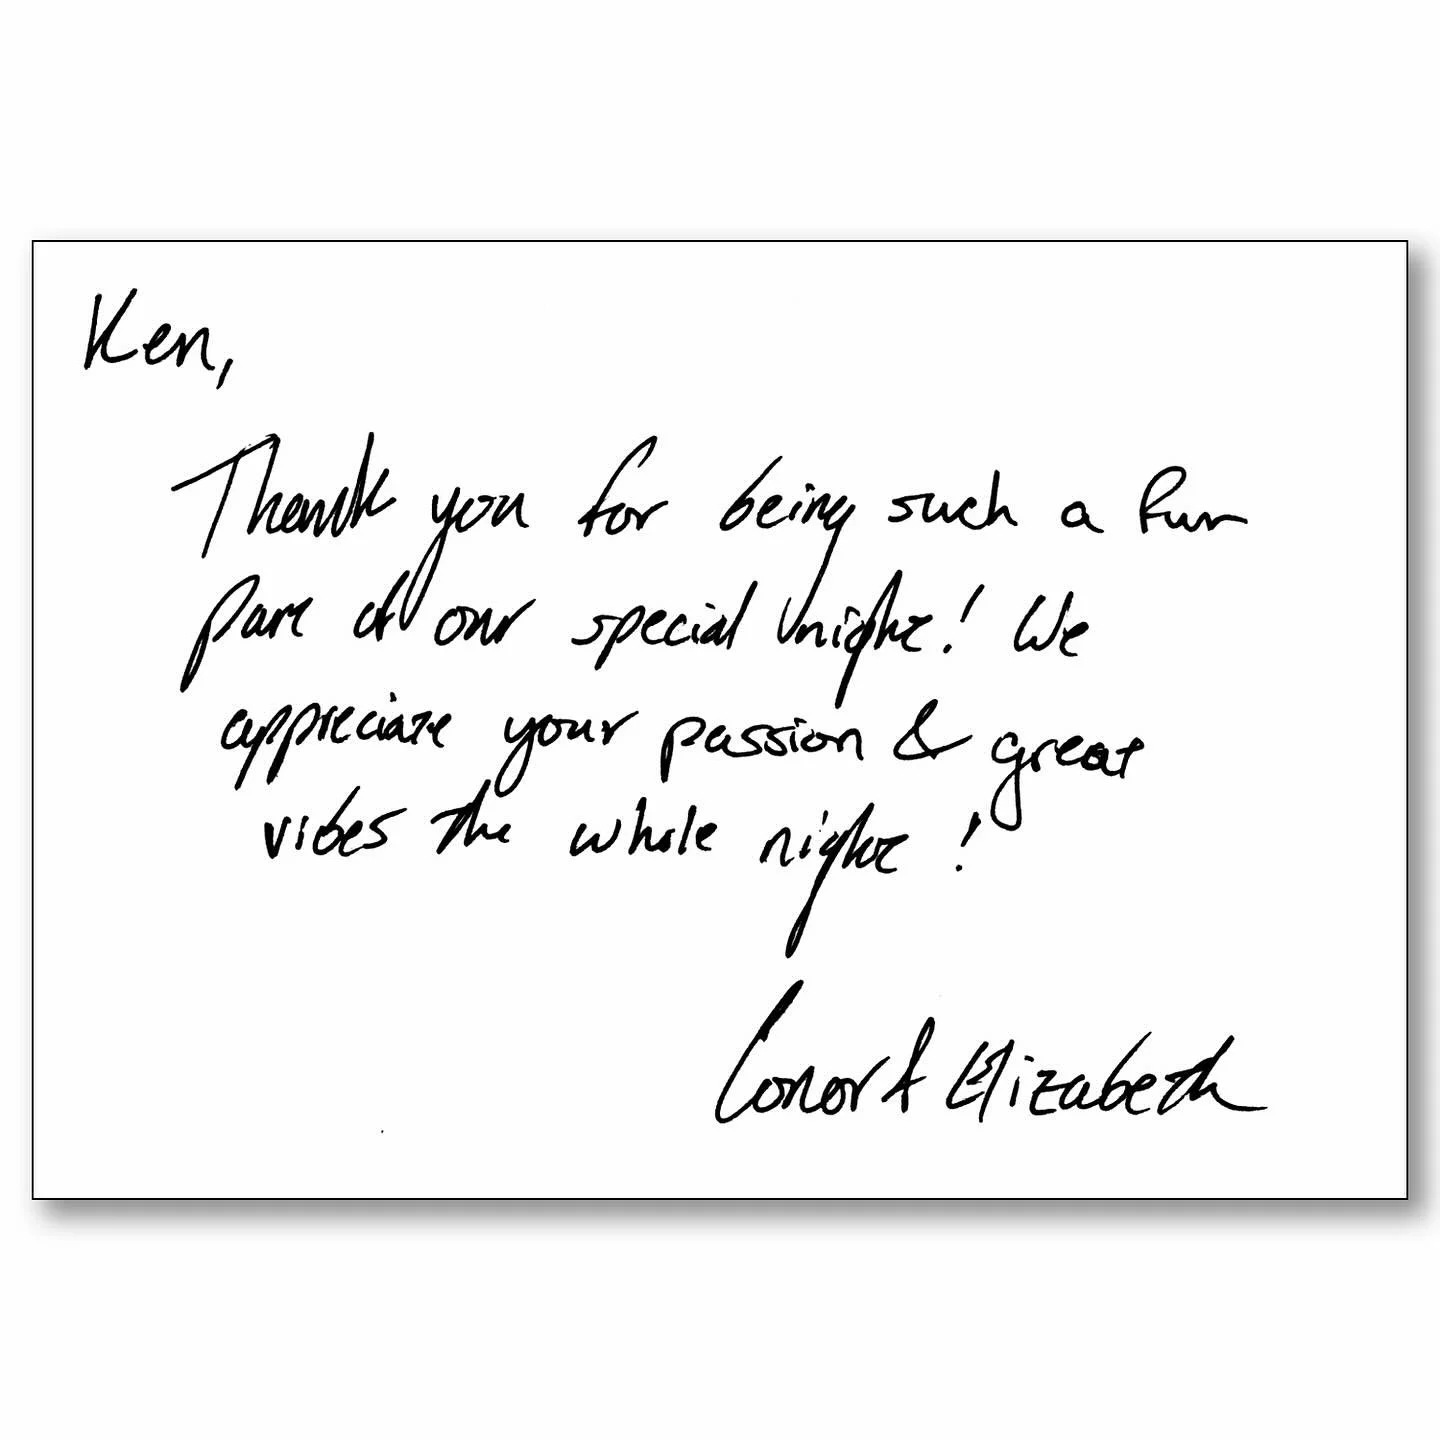 Ken,
Thank you for being such a fun
part of our special night! We
appreciate your passion & great
vibes the whole night!
Conor & Elizabeth